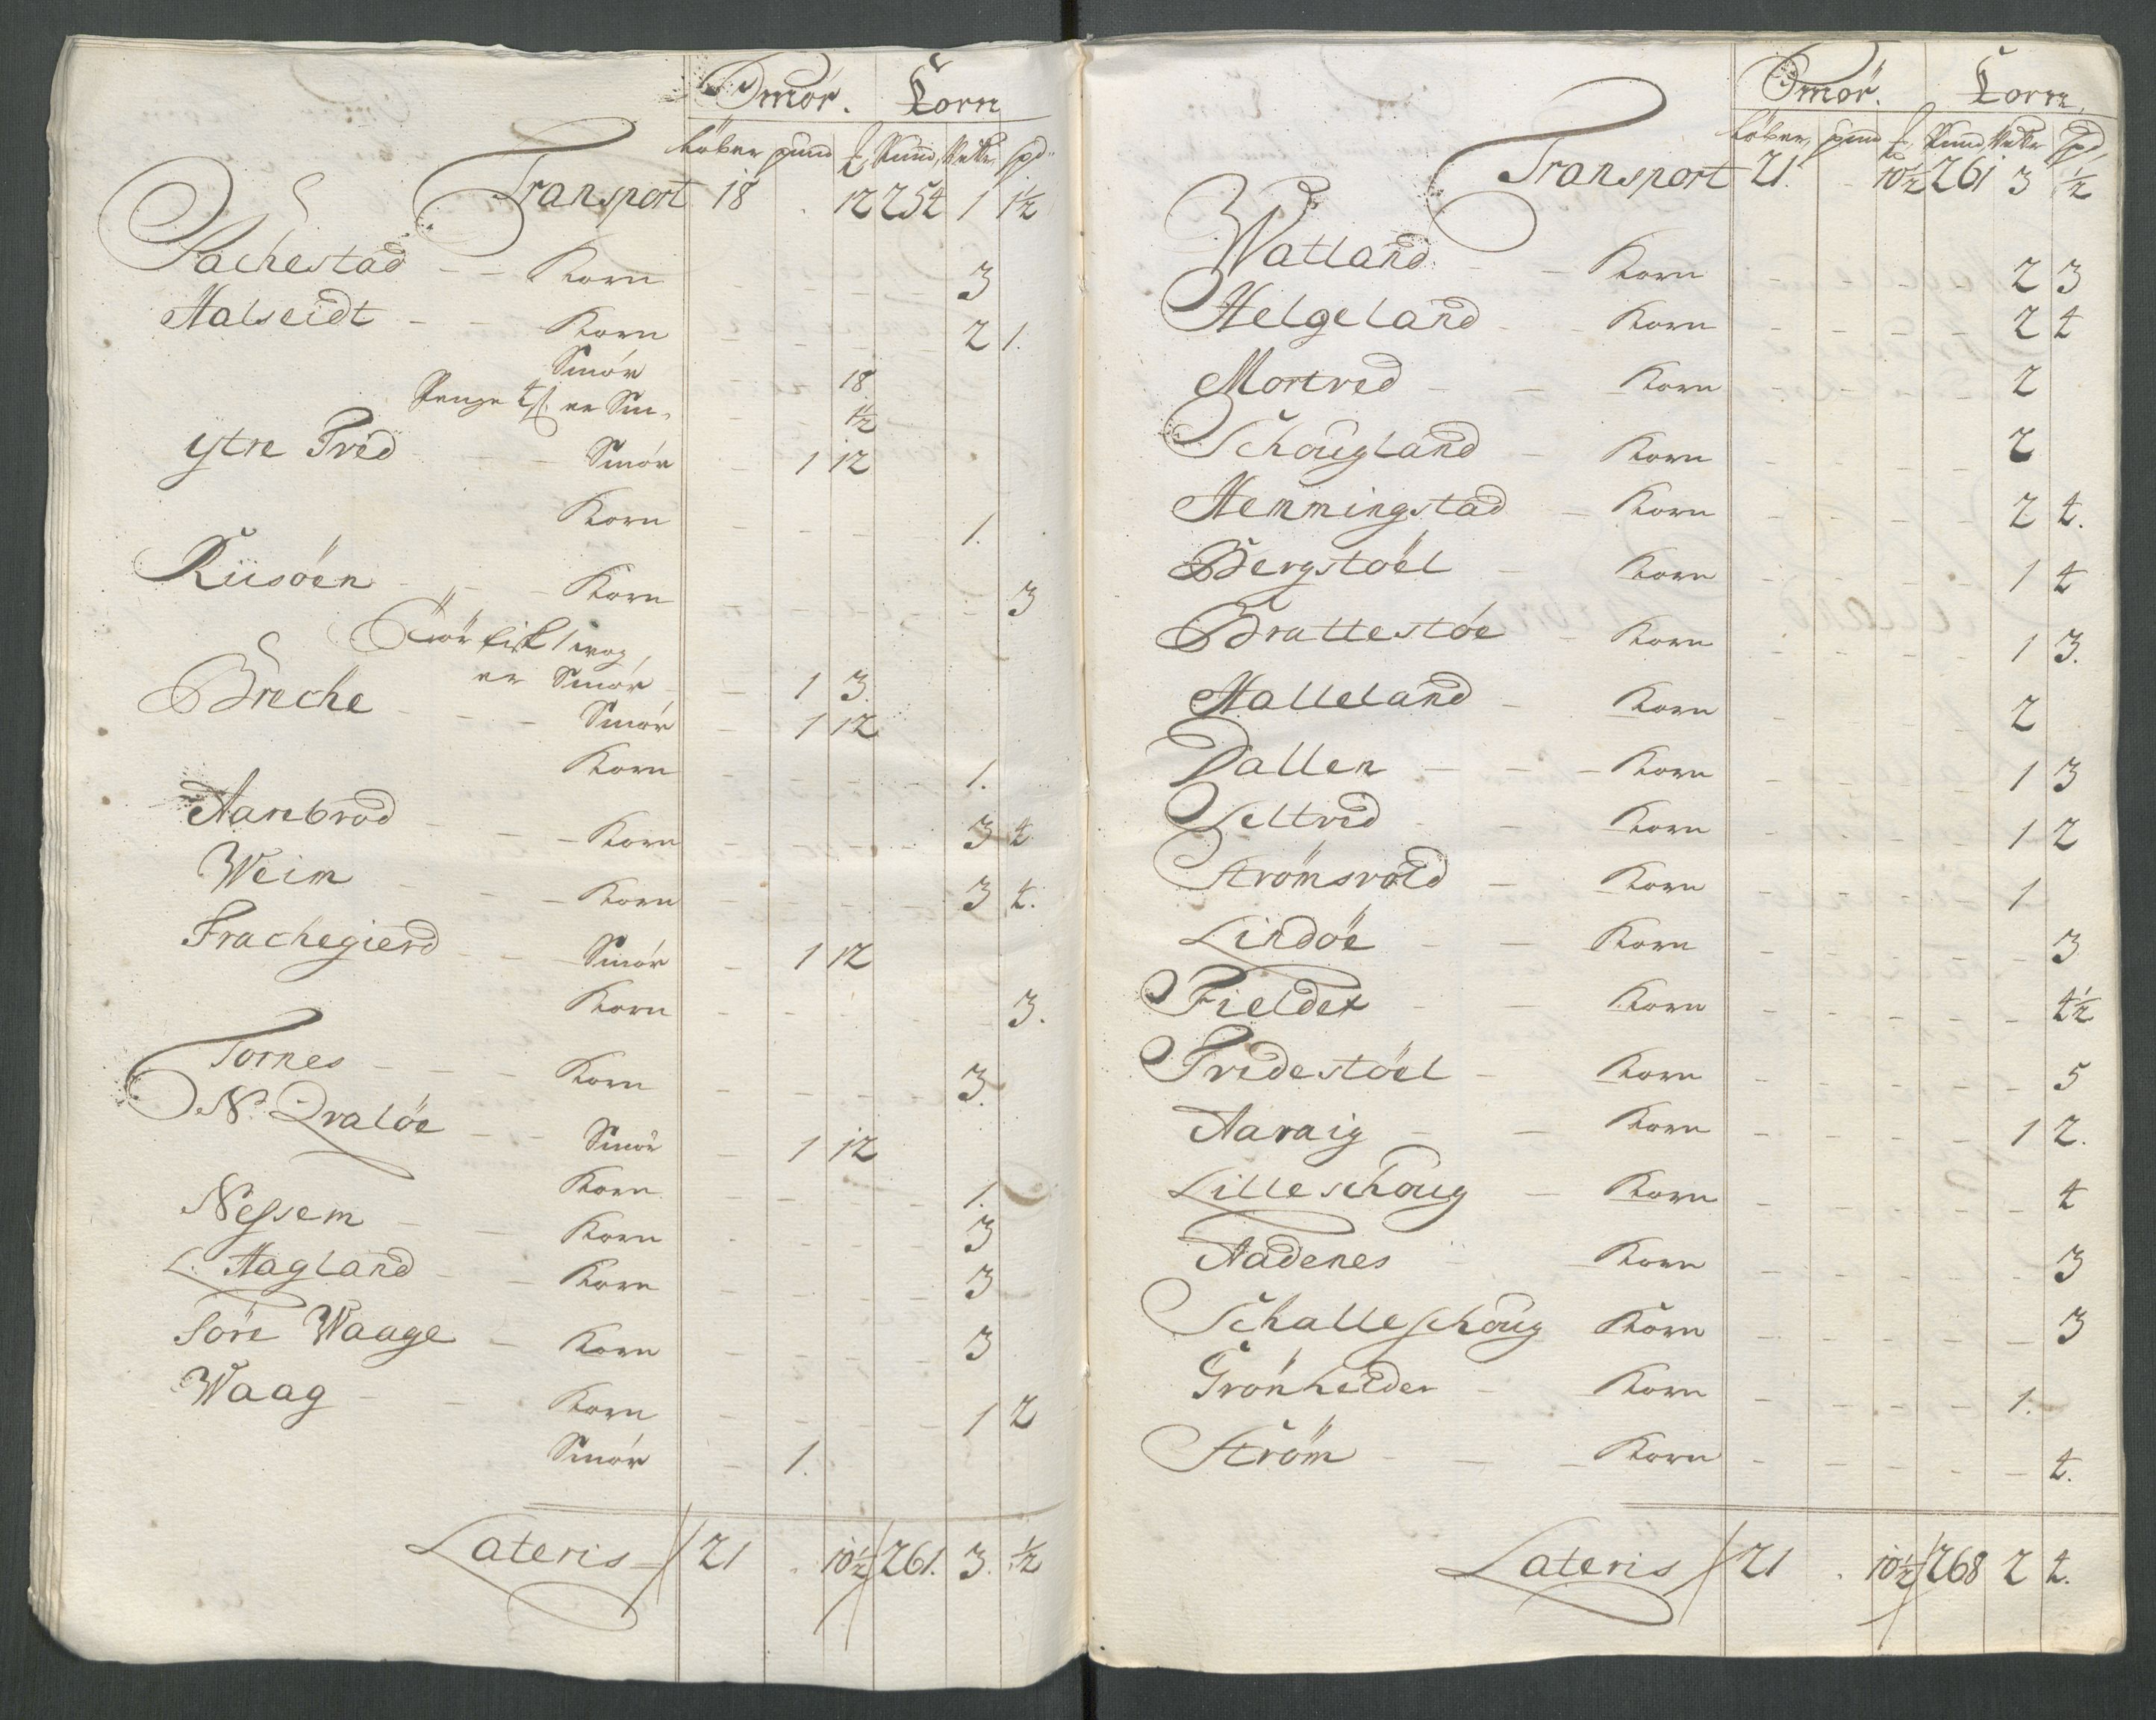 Smör. Korn
Löber pund ℔ Pund, Vetter spd
Transport 18 . 12 254 1 1½
Rachestad - - Korn - - - - 3
Halseidt - - Korn - - - - 2 1.
Smör - - 18
Penge 4 ß er Sm. - - 1½
ytre Tved - - Smör - 1 12
Korn - - - 1.
Riisöen - - Korn - - - - - 3
Tör fisk 1 wog,
er Smör - 1 3.
Breche - - - Smör - 1 12
Korn - - - - 1.
Aanbrod - - - Korn - - - - 3 4
Weim - - - Korn - - - - 3 4.
Frachegierd - - - Smör - 1 12
Korn - - - - - 3.
Tornes - - - Korn - - - - 3.
N. Qvalöe - - Smör - 1 12
Korn - - - 1.
Nessem - - Korn - - - - 3
L. Hagland - - Korn - - - - 3
Söre Waage - Korn - - - - 3
Waag - - Korn - - - - 1 2
Smör - 1.
Lateris - 21 . 10½ 261. 3. ½

Smör. Korn,
Löber, pund ℔ Pund, Vetter Spd
Transport 21. - 10½ 261 3 ½
Watland - - Korn - - - - - 2 3
Helgeland - - Korn - - - - - 2 4
Mortved - - Korn - - - - 2
Schougland - Korn - - - - - 2
Hemmingstad - Korn - - - - - 2 4.
Bergstöel - Korn - - - - - 1 4
Brattestöe - Korn - - - - - 1 3.
Halleland - Korn - - - - 2
Dallen - - - Korn - - - - 1 3
Seltved - - Korn - - - - - 1 2
Strömsvold - Korn - - - - - 1
Lindöe - - Korn - - - - - - 3
Fieldet - - Korn - - - - - - 4½
Tvedestöel - Korn - - - - - - 5
Aaraig - - Korn - - - - - 1 2.
Lilleschoug - Korn - - - - - - 4
Aadenes - Korn - - - - - - 3
Schalleschoug Korn - - - - - - 3
Grönhelder - Korn - - - - - 1.
Ström - - - Korn - - - - - - 4.
Lateris 21 . 10½ 268 2 4.